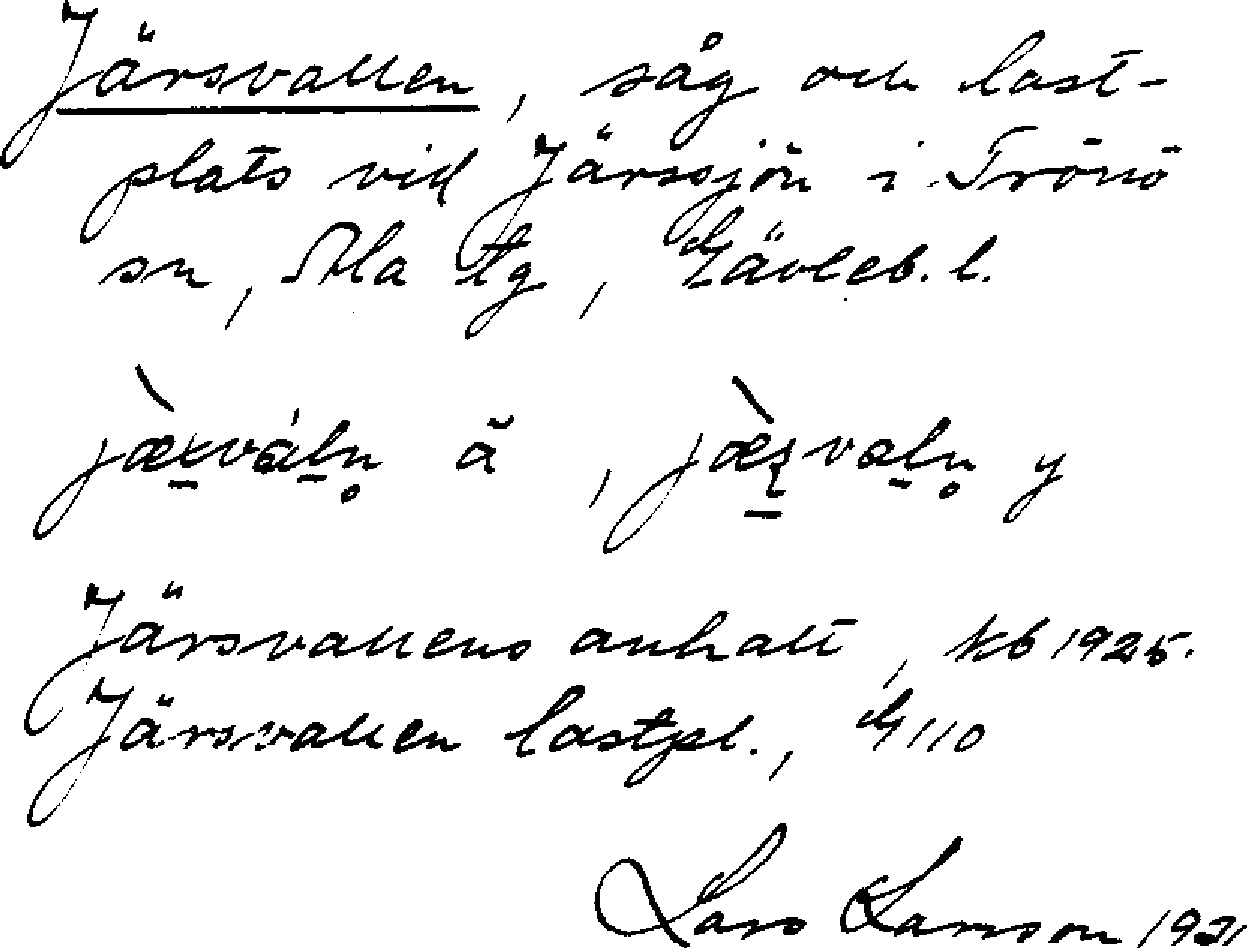 Järsvallen, såg och last-
plats vid Järssjön i Trönö
sn, Ala tg, Gävleb. l.
ă, y
Järsvallens anhalt, kb 1925.
Järsvallen lastpl., G 110
Lars Larsson 1931